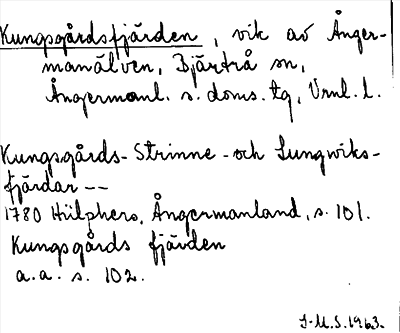 Kungsgårdsfjärden, vik av Ånger-
manälven, Bjärtrå sn,
Ångermanl. s. doms. tg, Vrnl. l.
Kungsgårds- Strinne - och Lungwiks-
fjärdar --
1780 Hülphers, Ångermanland, s. 101.
Kungsgårds fjärden
a.a. s. 102.
J-M.S. 1963.